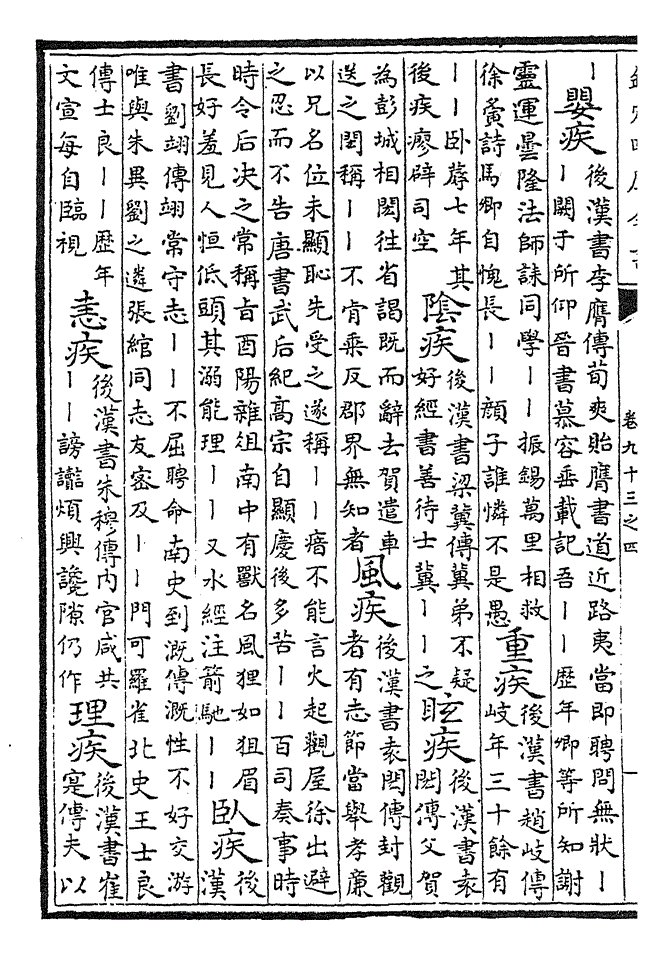 欽定四庫全書
卷九十三之四
一
｜嬰疾
後漢書李膺傳荀爽貽膺書道近路夷當即聘問無狀｜
｜闕于所仰晉書慕容垂載記吾｜｜歷年卿等所知謝
靈運曇隆法師誄同學｜｜振錫萬里相救
徐夤詩馬卿自愧長｜｜顔子誰憐不是愚
重疾
後漢書趙岐傳
岐年三十餘有
｜｜卧蓐七年其
後疾瘳辟司空
陰疾
後漢書梁冀傳冀弟不疑
好經書善待士冀｜｜之
眩疾
後漢書袁
閎傳父賀
為彭城相閎往省謁既而辭去賀遣車
送之閎稱｜｜不肯乘反郡界無知者
風疾
後漢書袁閎傳封觀
者有志節當舉孝廉
以兄名位未顯恥先受之遂稱｜｜瘖不能言火起觀屋徐出避
之忍而不告唐書武后紀高宗自顯慶後多苦｜｜百司奏事時
時令后决之常稱旨酉陽雜俎南中有獸名風狸如狙眉
長好羞見人恒低頭其溺能理｜｜又水經注箭馳｜｜
卧疾
後
漢
書劉翊傳翊常守志｜｜不屈聘命南史到溉傳溉性不好交游
唯與朱異劉之遴張綰同志友密及｜｜門可羅雀北史王士良
傳士良｜｜歷年
文宣每自臨視
恚疾
後漢書朱穆傳内官咸共
｜｜謗讟煩興讒隙仍作
理疾
後漢書崔
寔傳夫以